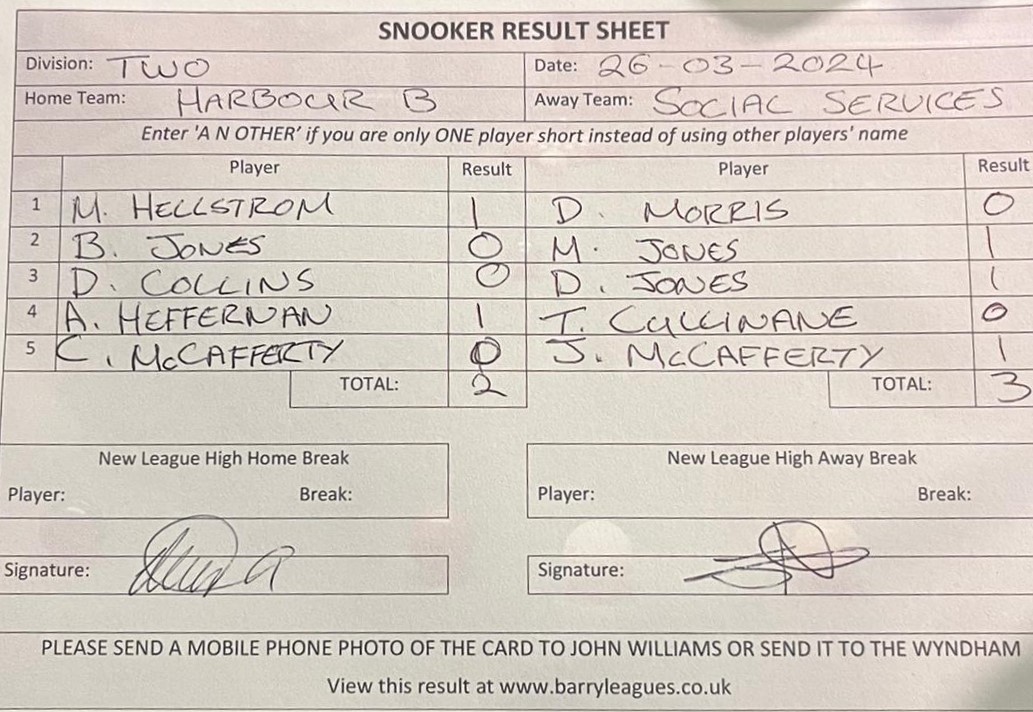 SNOOKER RESULT SHEET
Division: TWO Date: 26-03-2024
Home Team: HARBOUR B Away Team: SOCIAL SERVICES
Enter 'A N OTHER' if you are only ONE player short instead of using other players' name
Player Result Player Result
1 M. HELLSTROM 1 D. MORRIS 0
2 B. JONES 0 M. JONES 1
3 D. COLLINS 0 D. JONES 1
4 A. HEFFERNAN 1 T. CULLINANE 0
5 C. McCAFFERTY 0 J. McCAFFERTY 1
TOTAL: 2 TOTAL: 3
New League High Home Break New League High Away Break
Player: Break: Player: Break:
Signature: Signature:
PLEASE SEND A MOBILE PHONE PHOTO OF THE CARD TO JOHN WILLIAMS OR SEND IT TO THE WYNDHAM
View this result at www.barryleagues.co.uk